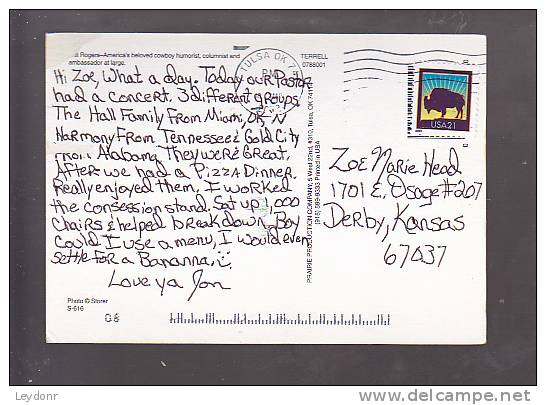 ll Rogers-America's beloved cowboy humorist, columnist and
ambassador at large.
TERRELL
0788001
TULSA OK 7
PM
USA21
Hi Zoe, What a day. Today our Pastor
had a concert. 3 different groups.
The Hall Family From Miami, OK-N
Harmony From Tennessee & Gold City
From Alabama. They were Great,
After we had a Pizza Dinner.
Really enjoyed them, I worked
the consession stand. Set up 1,000
Chairs & helped break down. Boy
Could I use a menu, I would even
settle for a Bananna,
Love ya Jon
Zoe Marie Head
1701 E. Osage #207
Derby, Kansas
67037
PRAIRIE PRODUCTION COMPANY, 5 West 22nd, #310, Tulsa, OK 74114
(918) 599-9333 Printed in USA
Photo © Storer
S-616
08
Leydonr
www.delcampe.net